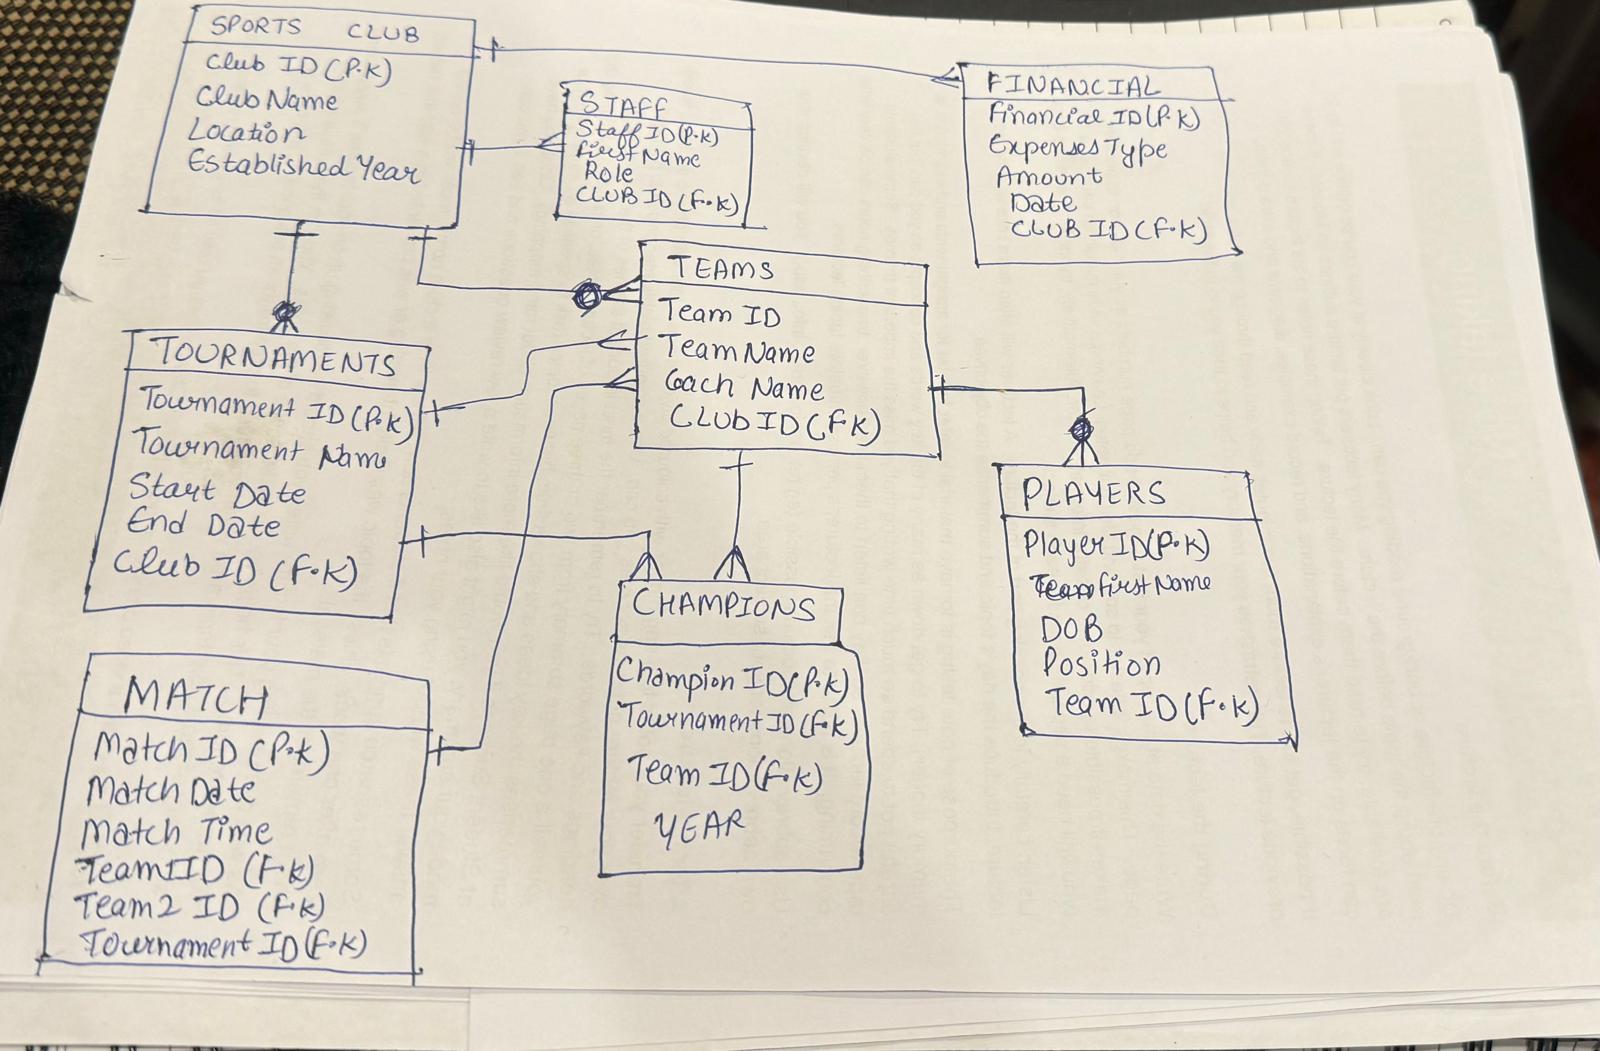 SPORTS CLUB
Club ID (P.K)
Club Name
Location
Established Year
STAFF
Staff ID (P.K)
First Name
Role
CLUB ID (F.K)
FINANCIAL
Financial ID (P.K)
Expenses Type
Amount
Date
CLUB ID (F.K)
TEAMS
Team ID
Team Name
Coach Name
CLUb ID (F.K)
TOURNAMENTS
Tournament ID (P.K)
Tournament Name
Start Date
End Date
Club ID (F.K)
PLAYERS
Player ID (P.K)
First Name
DOB
Position
Team ID (F.K)
CHAMPIONS
Champion ID (P.K)
Tournament ID (F.K)
Team ID (F.K)
YEAR
MATCH
Match ID (P.K)
Match Date
Match Time
Team1 ID (F.K)
Team2 ID (F.K)
Tournament ID (F.K)